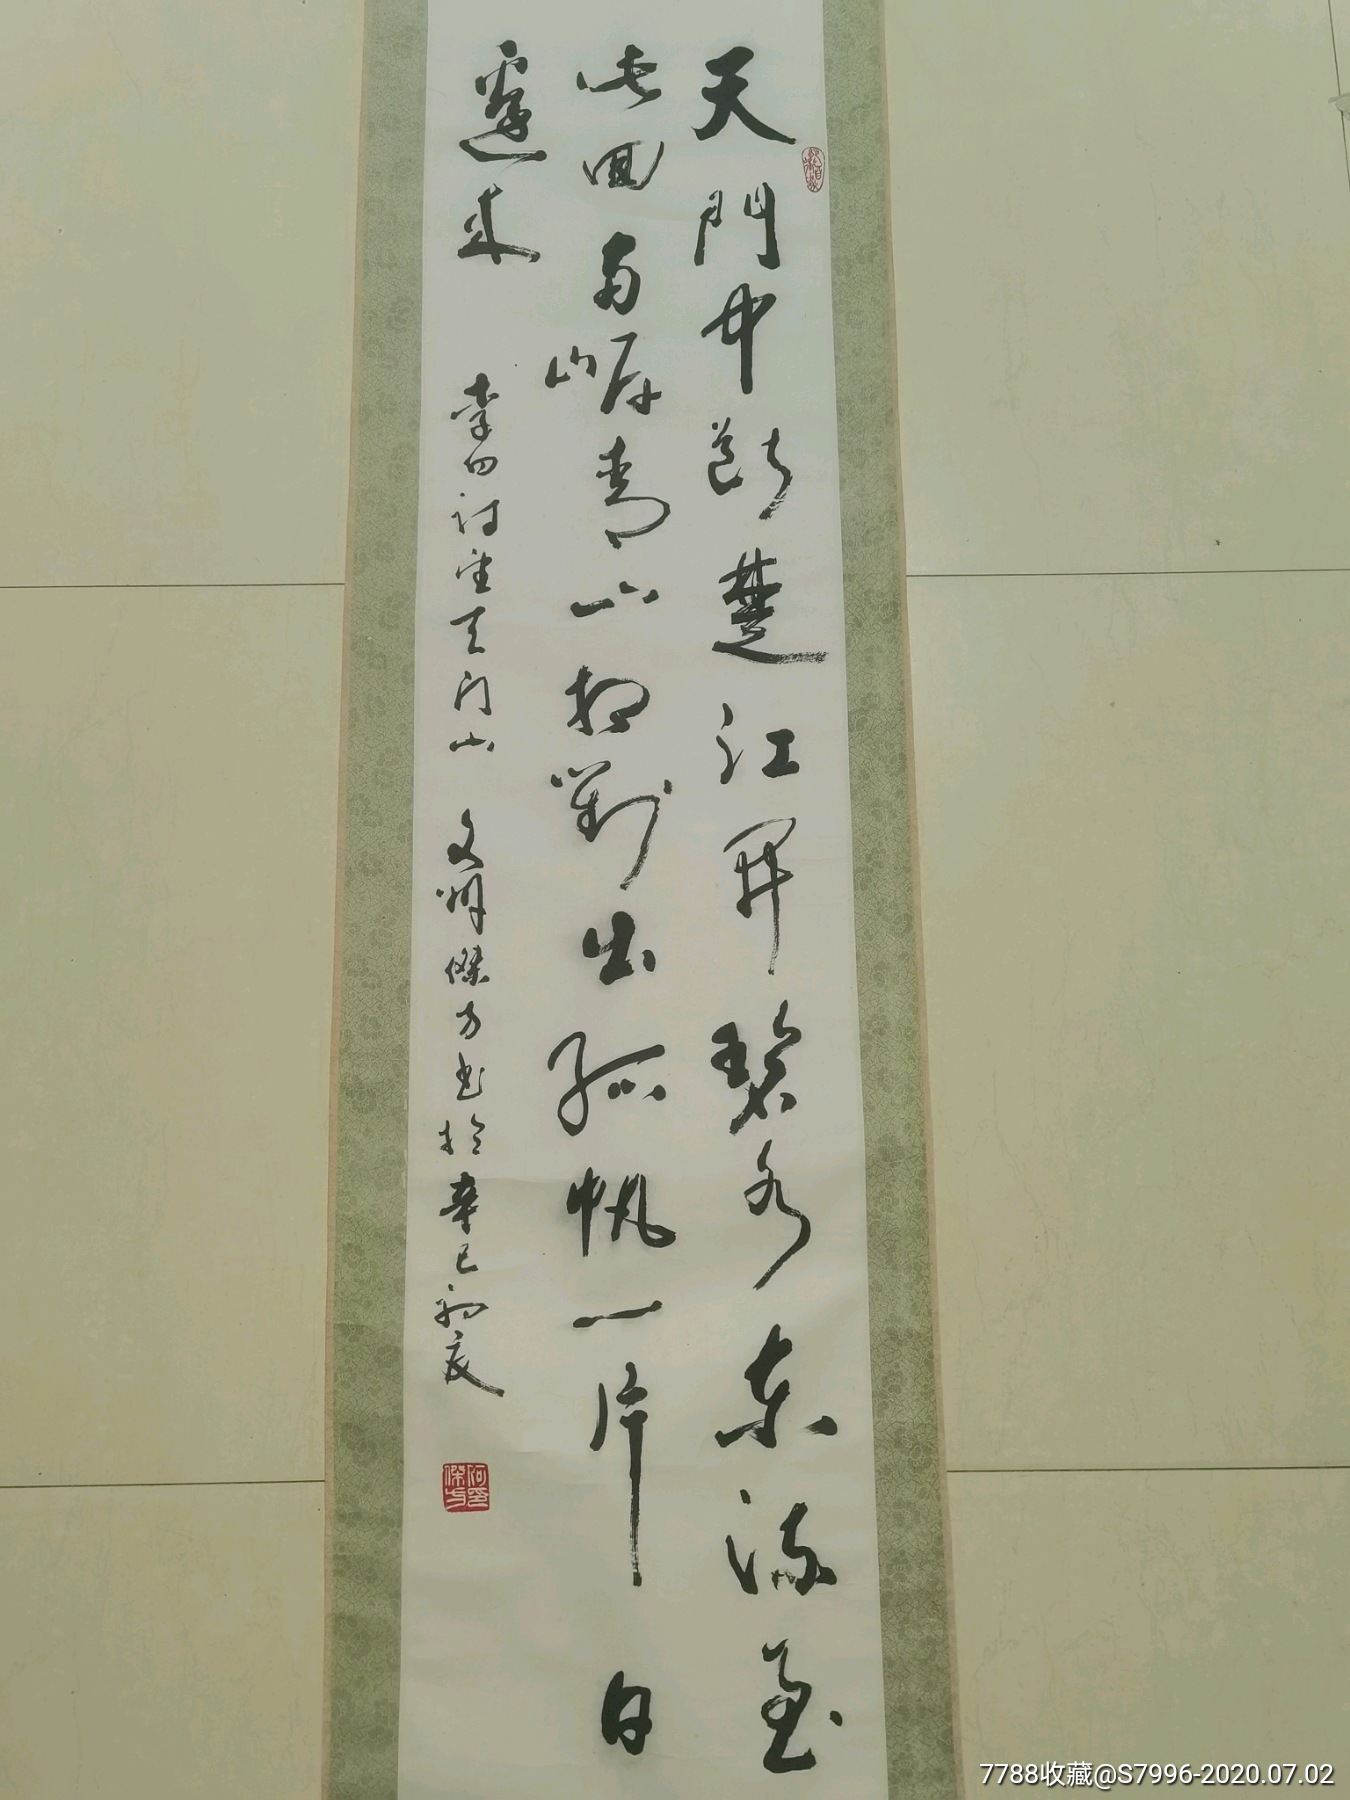 天門中斷楚江開碧水東流至
此回兩岸青山相對出孤帆一片日
邊來
李白詩望天門山 文 傑方书於辛巳初夏
何印傑方
7788收藏@S7996-2020.07.02